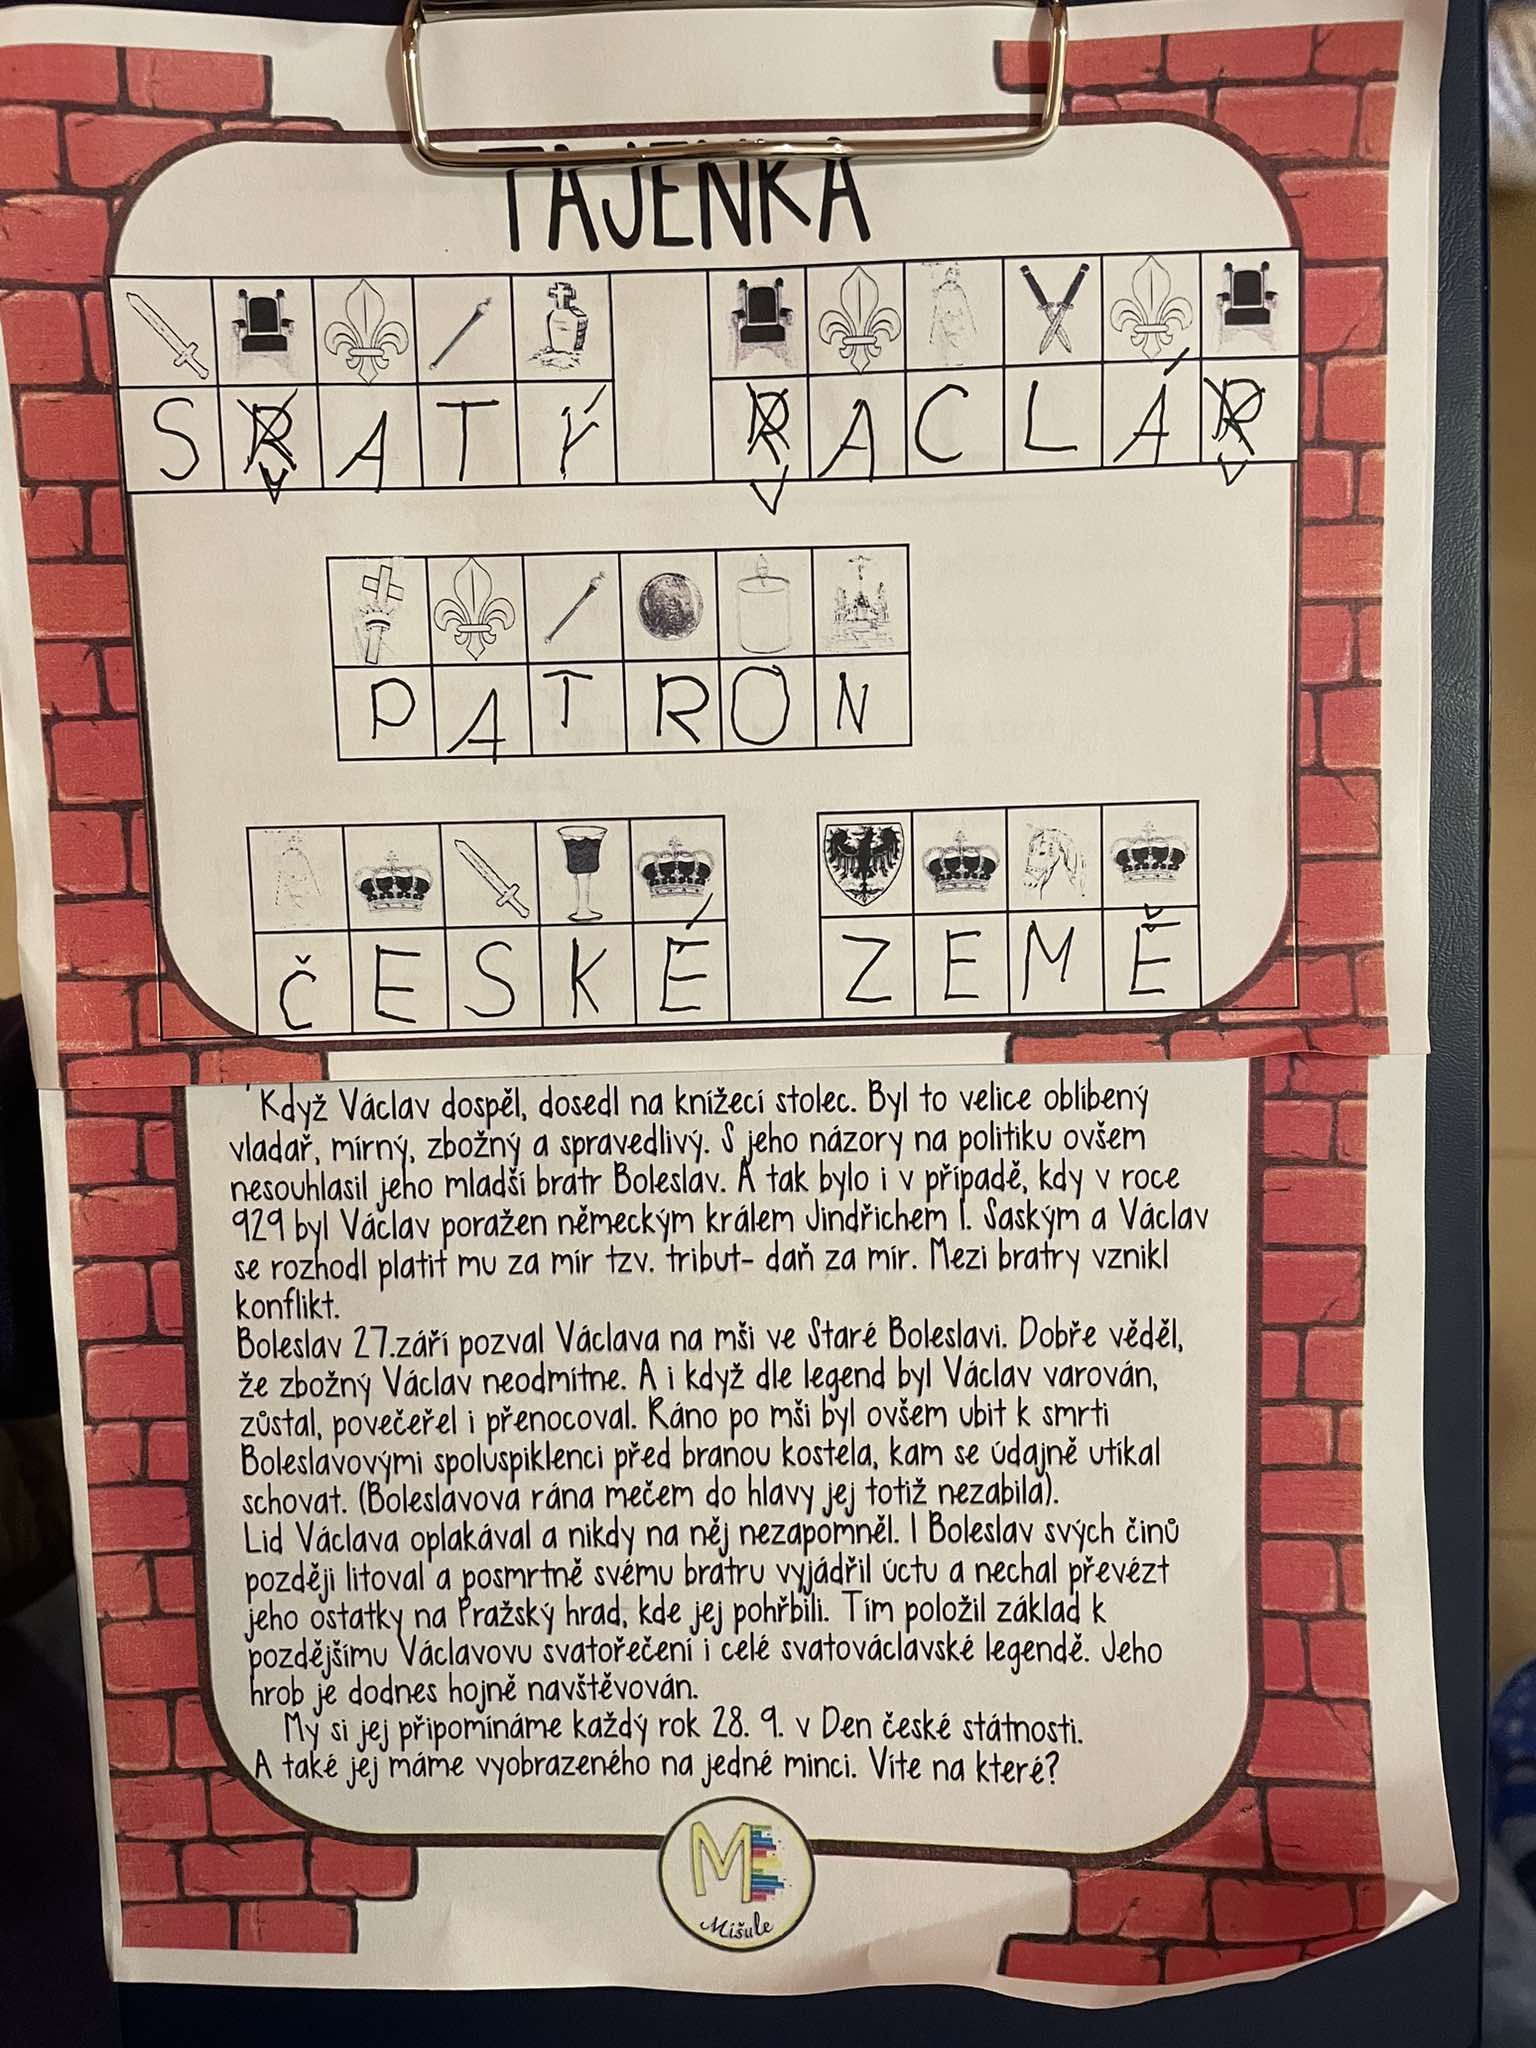 TAJENKA
S R A T Ý R A C L Á R
V V V
P A T R O N
Č E S K É Z E M Ě
Když Václav dospěl, dosedl na knížecí stolec. Byl to velice oblíbený
vladař, mírný, zbožný a spravedlivý. S jeho názory na politiku ovšem
nesouhlasil jeho mladší bratr Boleslav. A tak bylo i v případě, kdy v roce
929 byl Václav poražen německým králem Jindřichem I. Saským a Václav
se rozhodl platit mu za mír tzv. tribut- daň za mír. Mezi bratry vznikl
konflikt.
Boleslav 27.září pozval Václava na mši ve Staré Boleslavi. Dobře věděl,
že zbožný Václav neodmítne. A i když dle legend byl Václav varován,
zůstal, povečeřel i přenocoval. Ráno po mši byl ovšem ubit k smrti
Boleslavovými spoluspiklenci před branou kostela, kam se údajně utíkal
schovat. (Boleslavova rána mečem do hlavy jej totiž nezabila).
Lid Václava oplakával a nikdy na něj nezapomněl. I Boleslav svých činů
později litoval a posmrtně svému bratru vyjádřil úctu a nechal převézt
jeho ostatky na Pražský hrad, kde jej pohřbili. Tím položil základ k
pozdějšímu Václavovu svatořečení i celé svatováclavské legendě. Jeho
hrob je dodnes hojně navštěvován.
My si jej připomínáme každý rok 28. 9. v Den české státnosti.
A také jej máme vyobrazeného na jedné minci. Víte na které?
M
Míšule